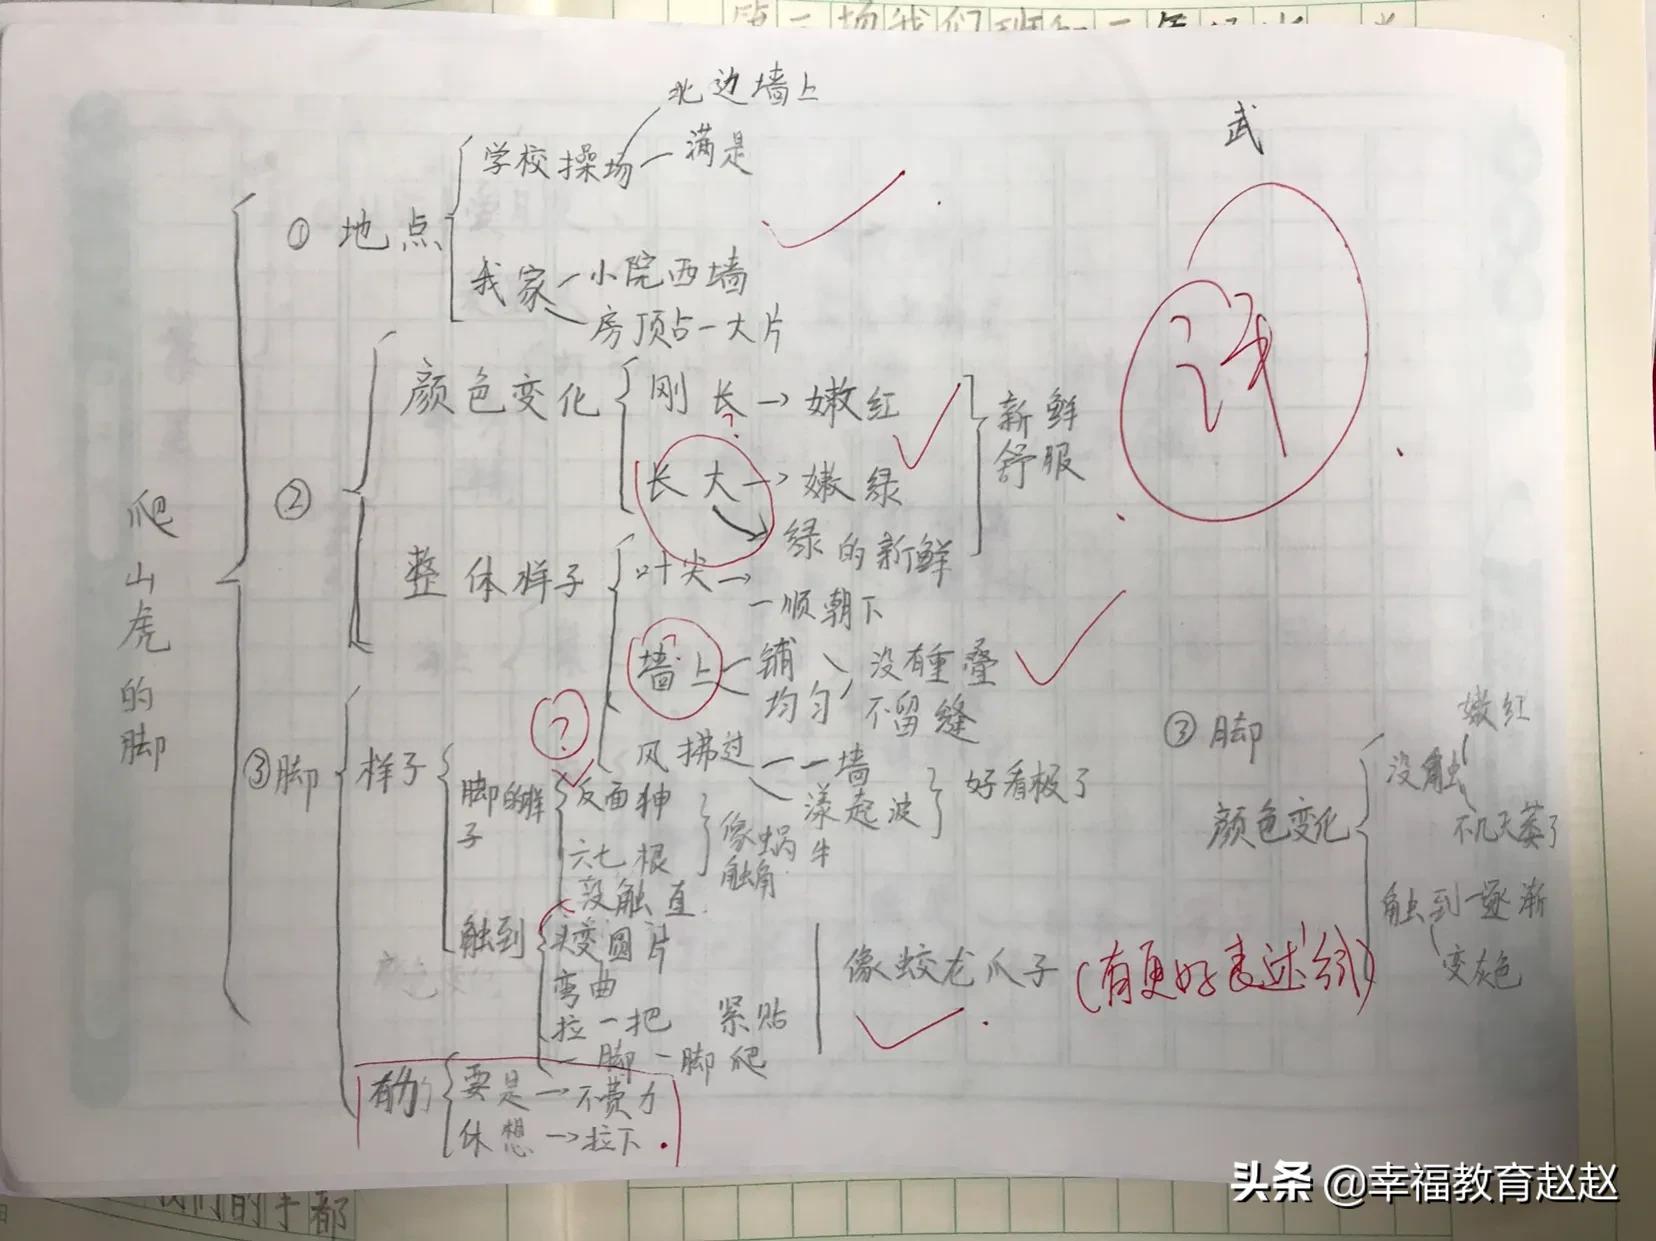 第二场我们班和二年级
北边墙上
学校操场 — 满是
武
① 地点
我家 — 小院西墙
房顶占一大片
详
颜色变化 刚长 → 嫩红
?
新鲜
舒服
长大 → 嫩绿
绿的新鲜
②
爬山虎的脚
整体样子 叶尖 →
一顺朝下
墙上 铺 没有重叠
均匀 不留缝
?
风拂过 一墙
漾起波
好看极了
③脚 样子
脚的样子
反面伸
六七根
没触直
像蜗牛
触角
触到
头变圆片
弯曲
拉一把 紧贴
一脚一脚爬
像蛟龙爪子
(有更好表述给)
有力的
要是 → 不费力
休想 → 拉下
③ 脚
颜色变化
没触
嫩红
不几天萎了
触到 — 逐渐
变灰色
我们的手都
头条 @幸福教育赵赵